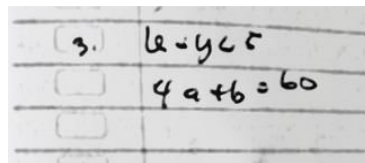 3. 6-y<5
4a+b=60